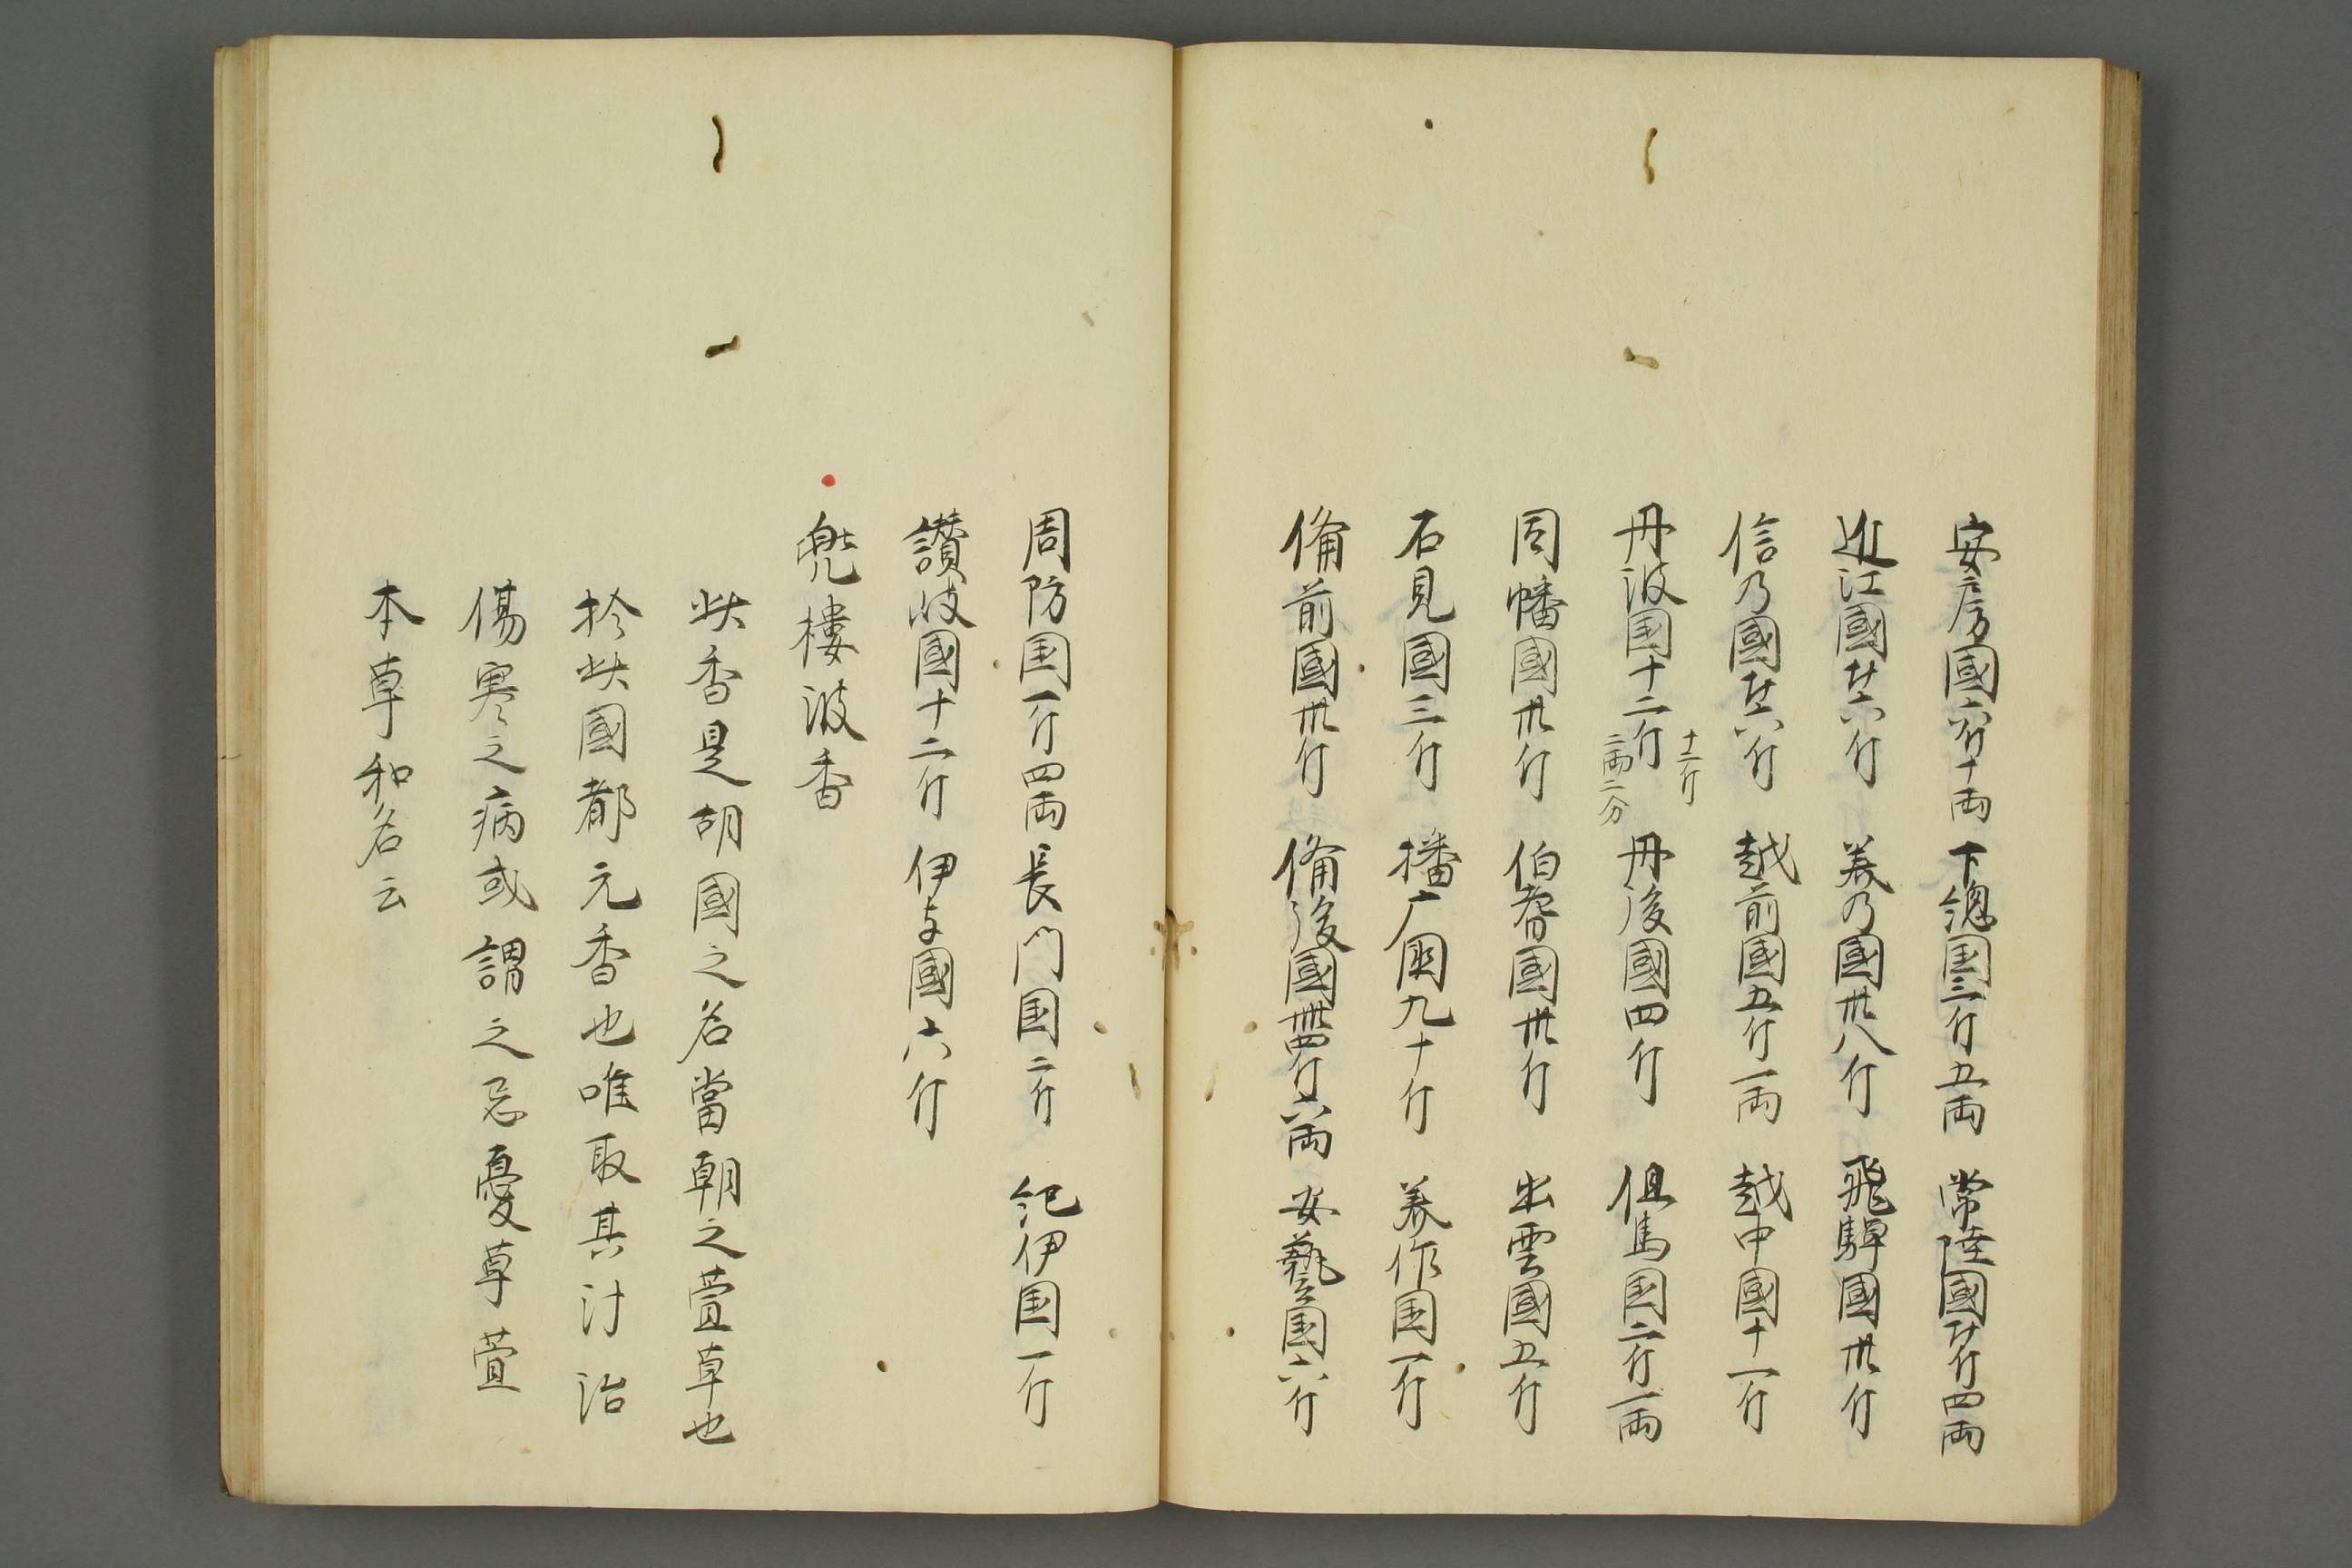 安房國六斤十両 下総国三斤五両 常陸國廿斤四両
近江國廿六斤 美乃國卅八斤 飛騨國卅斤
信乃國廿六斤 越前國五斤一両 越中國十一斤
丹波国十二斤 十二斤二両二分 丹後國四斤 但馬国二斤一両
因幡國卅斤 伯耆國卅斤 出雲國五斤
石見國三斤 播广圀九十斤 美作国一斤
備前國卅斤 備後國卌四斤六両 安藝国六斤
周防国一斤四両 長門国二斤 紀伊国一斤
讃岐國十二斤 伊与國六斤
兜樓波香
此香是胡國之名當朝之萱草也
於此國都元香也唯取其汁治
傷寒之病或謂之忘憂草萱
本草和名云